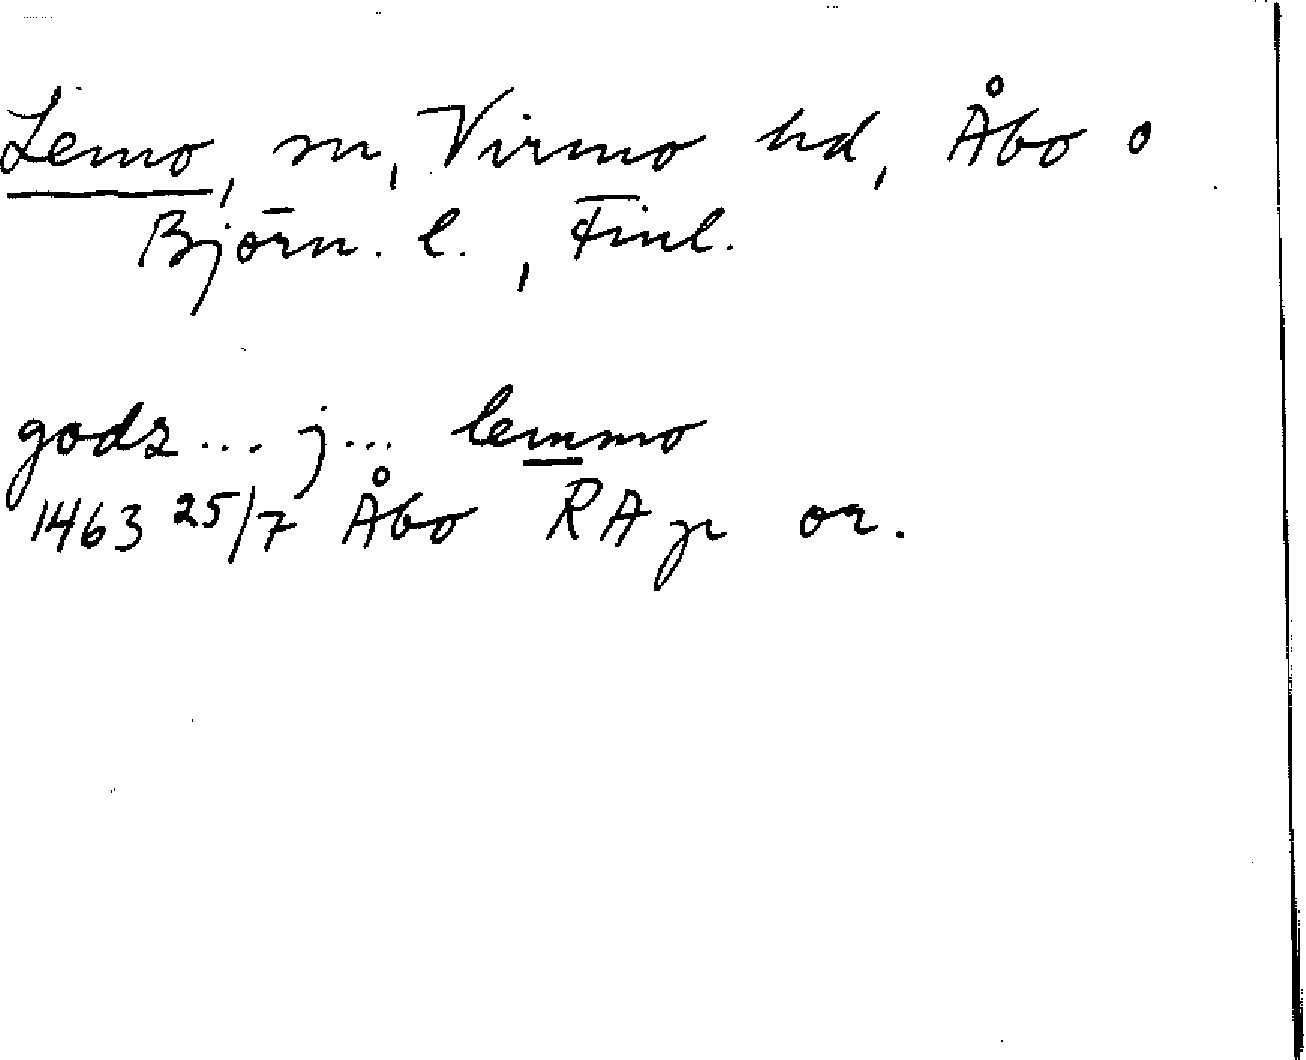 Lemo, sn, Virmo hd, Åbo o
Björn. l., Finl.
gods ... j ... lemmo
1463 25/7 Åbo RAp or.